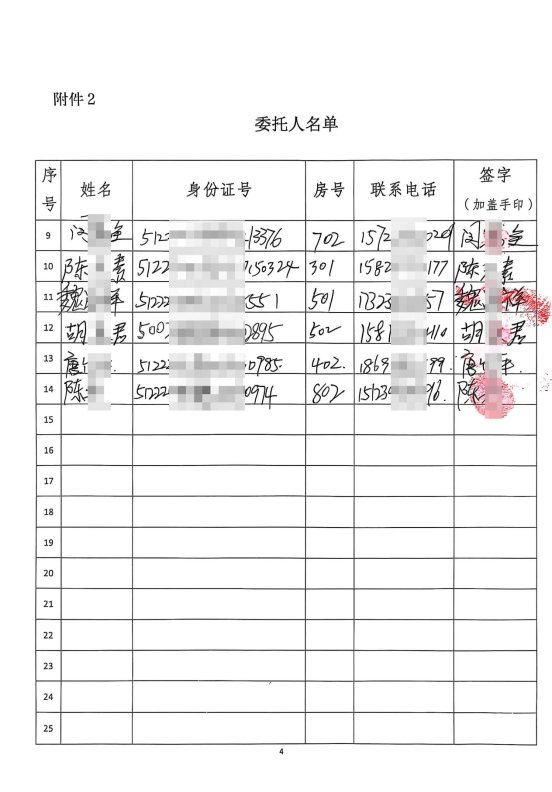 附件2
委托人名单
序号 姓名 身份证号 房号 联系电话 签字（加盖手印）
9 闫 全 512 13376 702 1572 029 闫 全
10 陈 素 5122 150324 301 1582 177 陈 素
11 魏 平 51222 551 501 17323 57 魏
12 胡 君 5002 0895 502 1581 410 胡 君
13 唐 51222 0985 402 1869 99 唐 平
14 陈 51222 0974 802 15123 96 陈
15
16
17
18
19
20
21
22
23
24
25
4